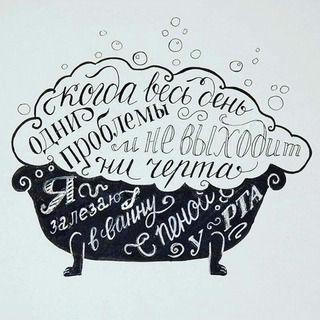 когда весь день
одни проблемы
и не выходит
ни черта
Я
залезаю
в ванну
с пеной
у рта